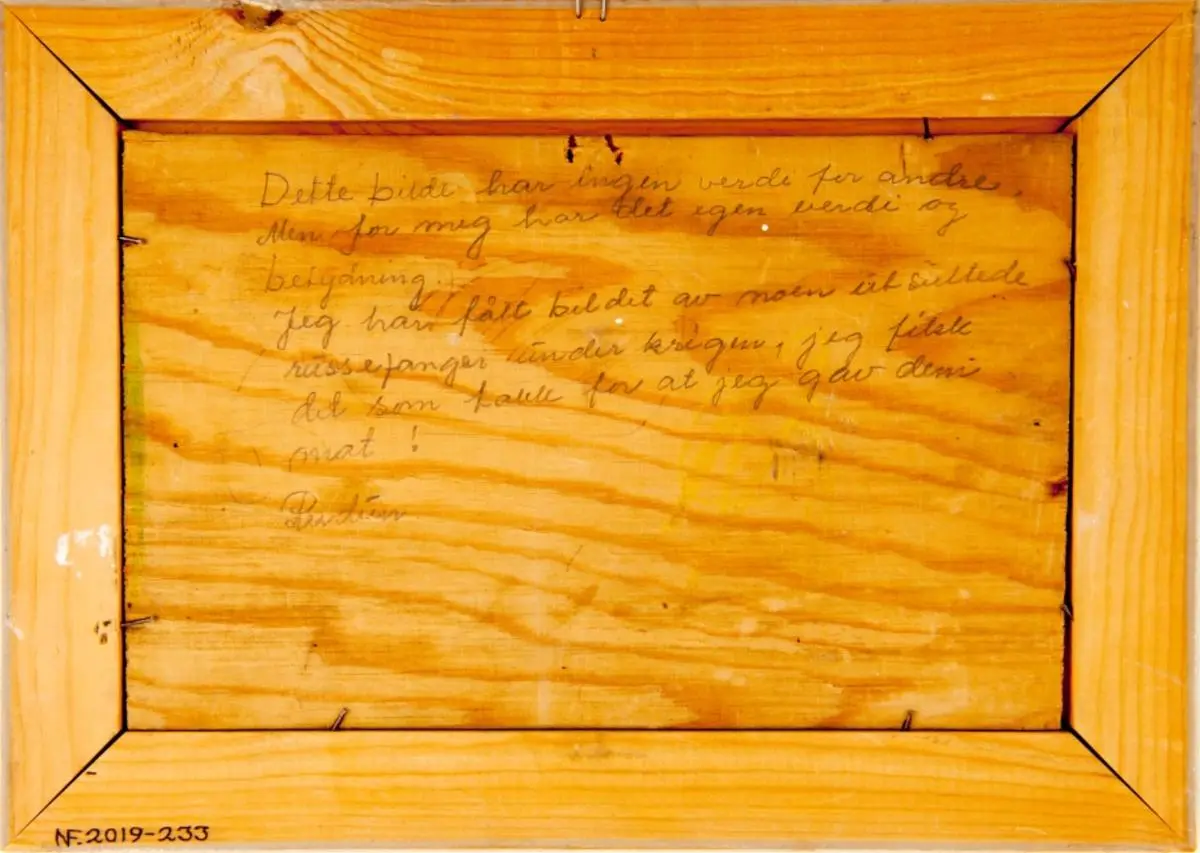 Dette bilde har ingen verdi for andre.
Men for meg har det egen verdi og
betydning.
Jeg har fått bildet av noen utsultede
russefanger under krigen, jeg fikk
det som takk for at jeg gav dem
mat!
NF.2019-233